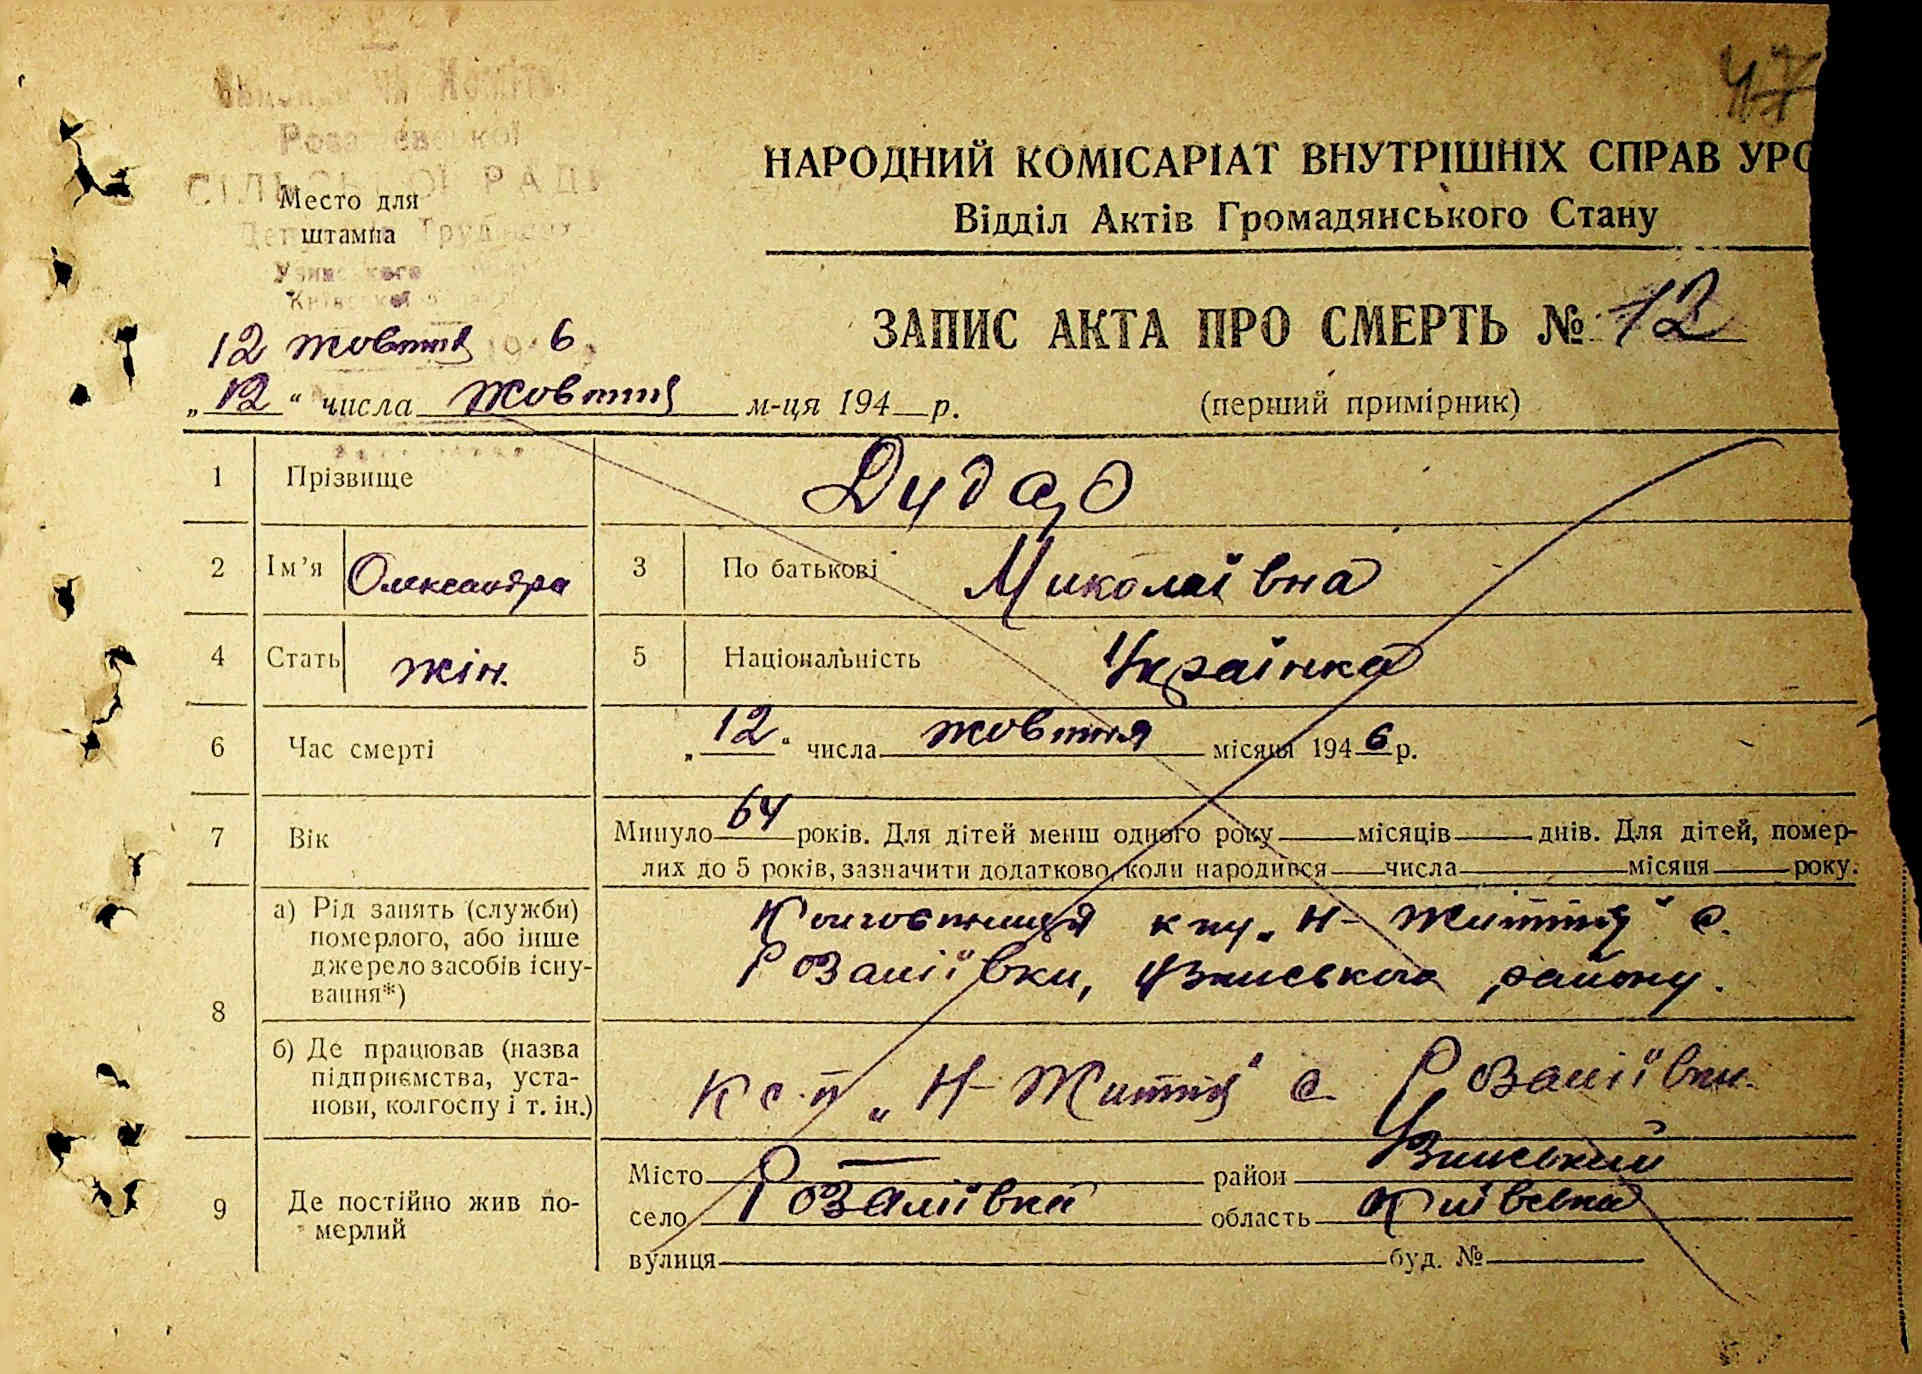 47
НАРОДНИЙ КОМІСАРІАТ ВНУТРІШНІХ СПРАВ УРС
Відділ Актів Громадянського Стану
СІЛЬСЬКОЇ РАДИ
Место для
штампа
ЗАПИС АКТА ПРО СМЕРТЬ № 12
12 жовтня 6
„12“ числа жовтня м-ця 194 р.
(перший примірник)
1 Прізвище Дудар
2 Ім’я Олександра 3 По батькові Миколаївна
4 Стать жін. 5 Національність Українка
6 Час смерті „12“ числа жовтня місяця 1946 р.
7 Вік Минуло 64 років. Для дітей менш одного року місяців днів. Для дітей, помер-
лих до 5 років, зазначити додатково, коли народився числа місяця року.
8
а) Рід занять (служби)
померлого, або інше
джерело засобів існу-
вання*)
Колгоспниця „Н-Життя“ с.
Розаліївки, Узинського району.
б) Де працював (назва
підприємства, уста-
нови, колгоспу і т. ін.)
„Н-Життя“ с. Розаліївки.
9 Де постійно жив по-
мерлий
Місто — район Узинський
село Розаліївка область Київська
вулиця буд. №